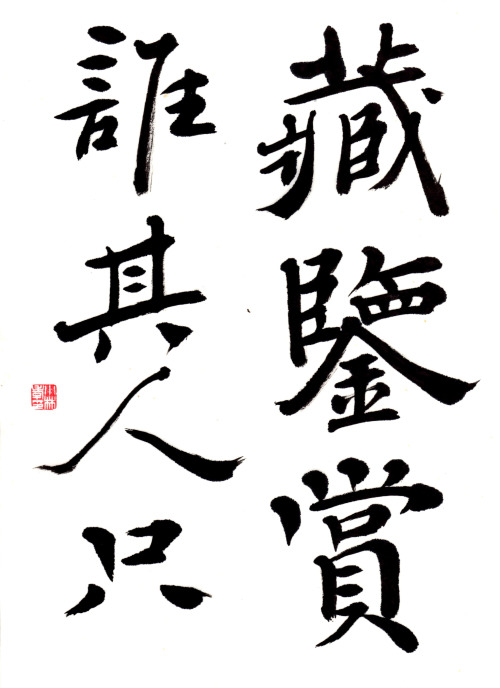 藏鑒賞
誰其人只